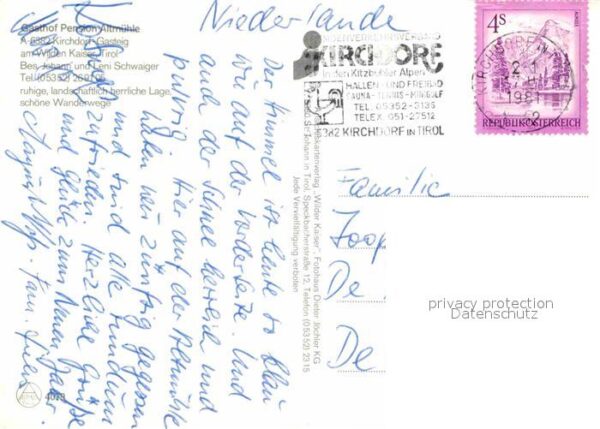 Niederlande
Gasthof Pension Altmühle
A-6382 Kirchdorf - Gasteig
am Wilden Kaiser, Tirol
Bes. Johann und Leni Schwaiger
Tel. (05352)
ruhige, landschaftlich herrliche Lage,
schöne Wanderwege
KIRCHDORF
in den Kitzbühler Alpen
HALLEN- UND FREIBAD
SAUNA - TENNIS - MINIGOLF
TEL. 05352-3136
TELEX 051-27512
6382 KIRCHDORF IN TIROL
4S
REPUBLIK ÖSTERREICH
Der Himmel ist heute so blau
wie auf der Vorderseite. Und
auch der Schnee herrlich und
pulvrig. Hier auf der Altmühle
haben wir zünftig gegessen
und sind alle rundum
zufrieden. Herzliche Grüße
und Glück zum Neuen Jahr.
Fam.
Ansichtskartenverlag „Wilder Kaiser", Fotohaus Dieter Jöchler KG
St. Johann in Tirol, Speckbacherstraße 12, Telefon (05352) 2315
Jede Vervielfältigung verboten
Familie
Joop
De
De
privacy protection
Datenschutz